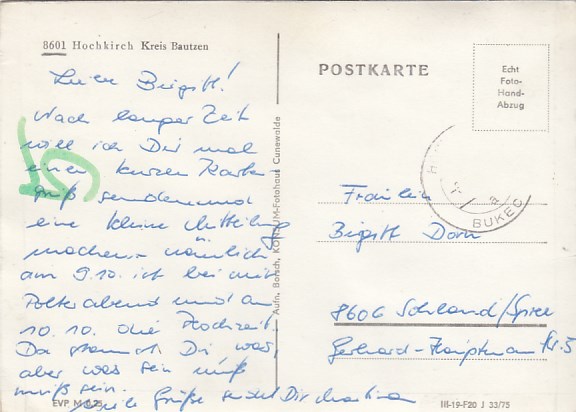 8601 Hochkirch Kreis Bautzen
Liebe Birgitt!
Nach langer Zeit
will ich Dir mal
einen kurzen Karten-
gruß senden und
eine kleine Mitteilung
machen, nämlich
am 9.10. ist bei mir
Polterabend und am
10.10. die Hochzeit.
Da staunst Du was,
aber was sein muß
muß sein.
Viele Grüße sendet Dir Martina
EVP M 0,25
Aufn. Borsch, KONSUM-Fotohaus Cunewalde
POSTKARTE
Echt
Foto-
Hand-
Abzug
BUKEC
Fräulein
Birgitt Dorn
8606 Sohland/Spree
Gerhard-Hauptmann Str. 5
III-19-F20 J 33/75